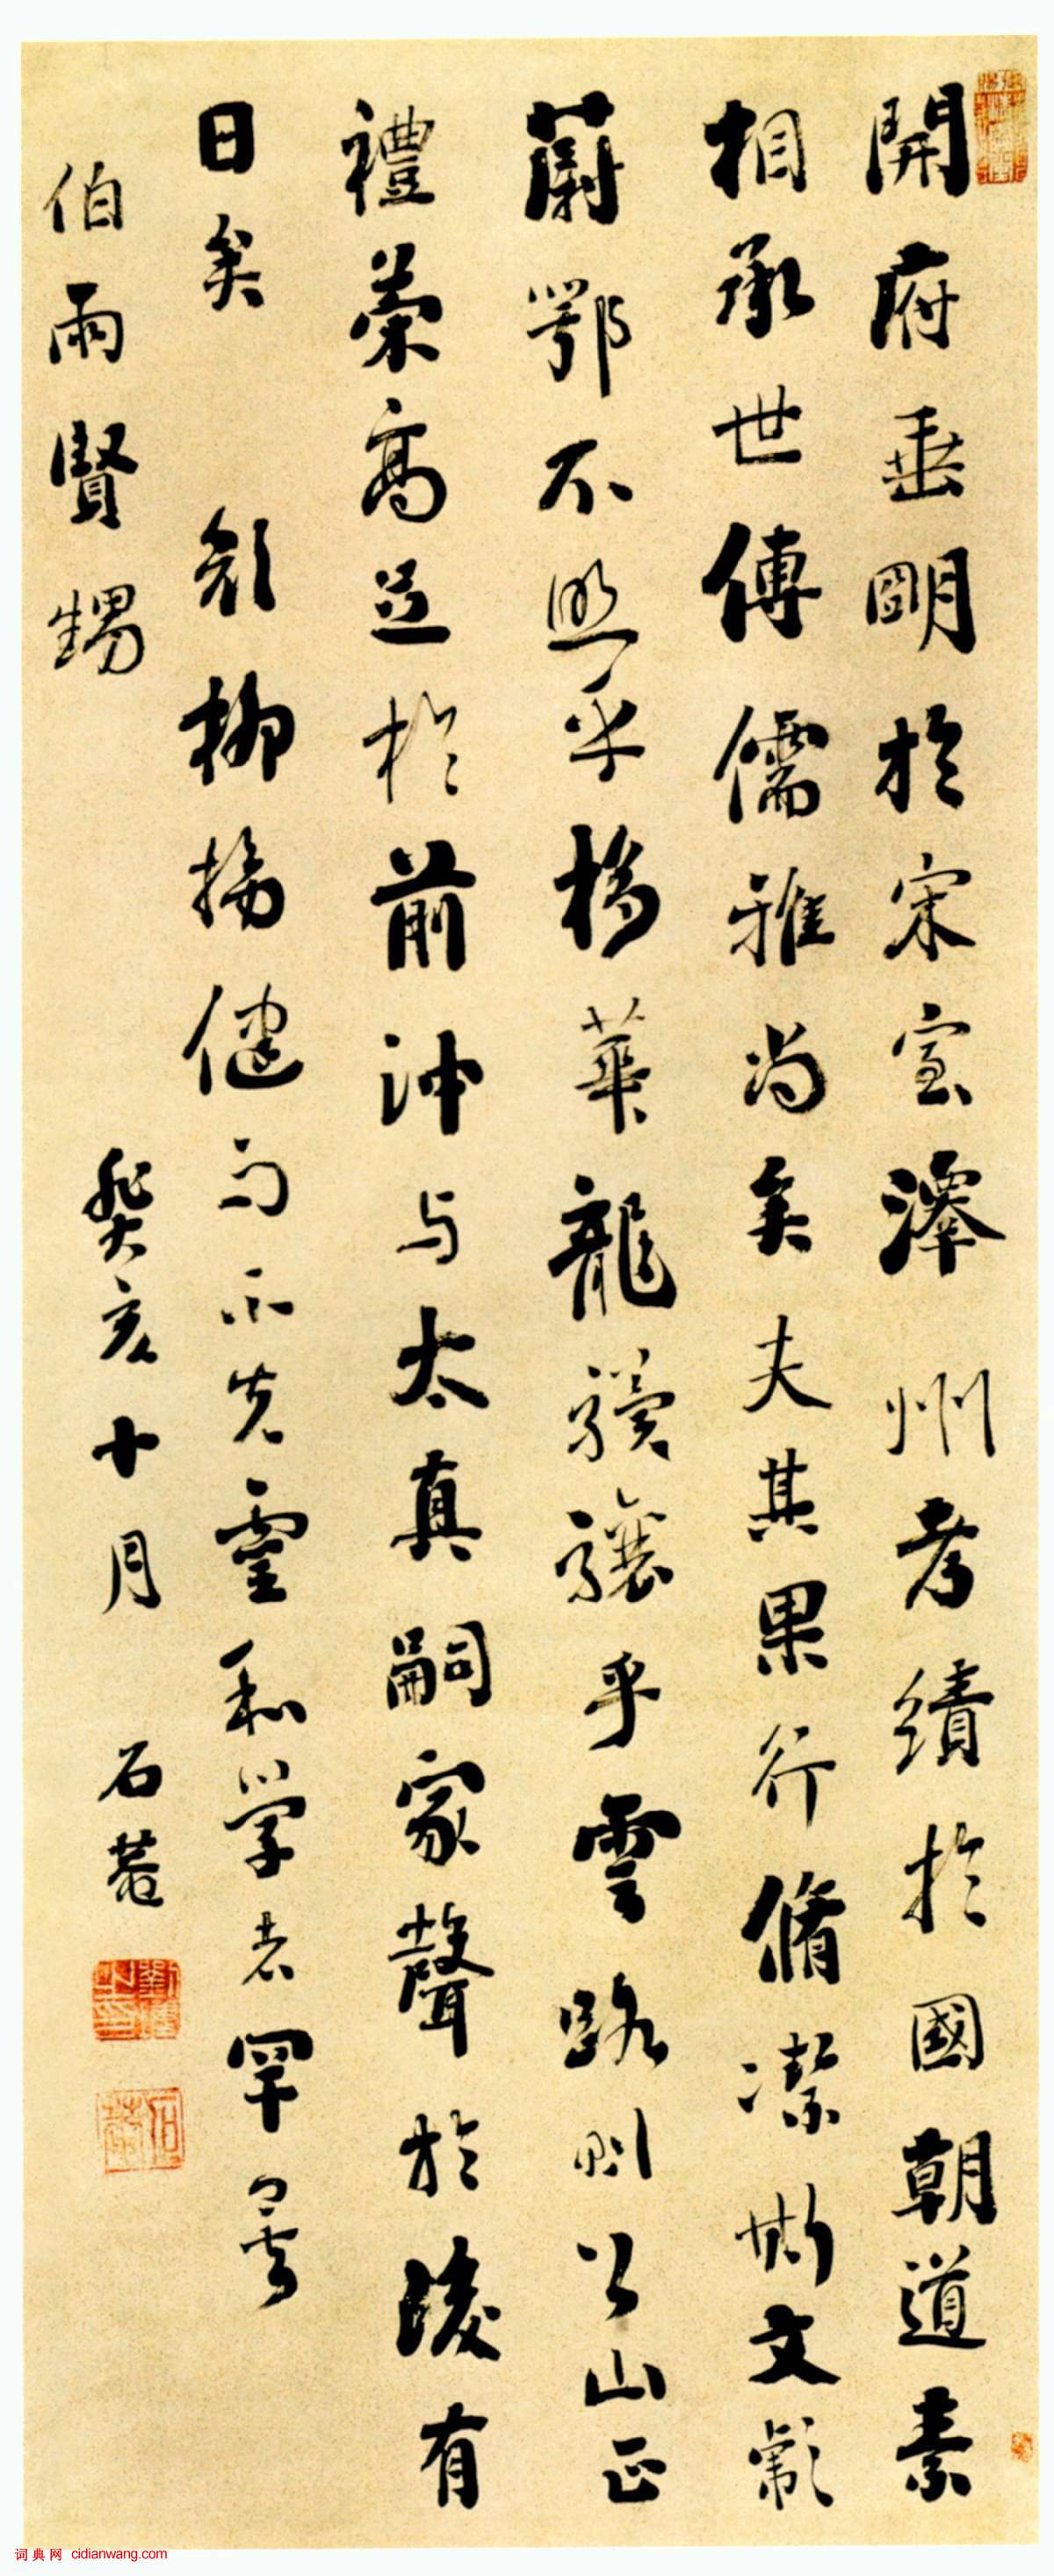 開府垂明於宋室澤州考績於國朝道素
相承世傳儒雅尚矣夫其果行脩潔斯文彪
蔚鄂不照乎移華龍驥驤乎雲路則公山正
禮榮高足於前沖与太真嗣家聲於後有
日矣 顏柳揚健而不先靈和學者罕
伯雨賢甥 癸亥十月 石菴
词典网 cidianwang.com